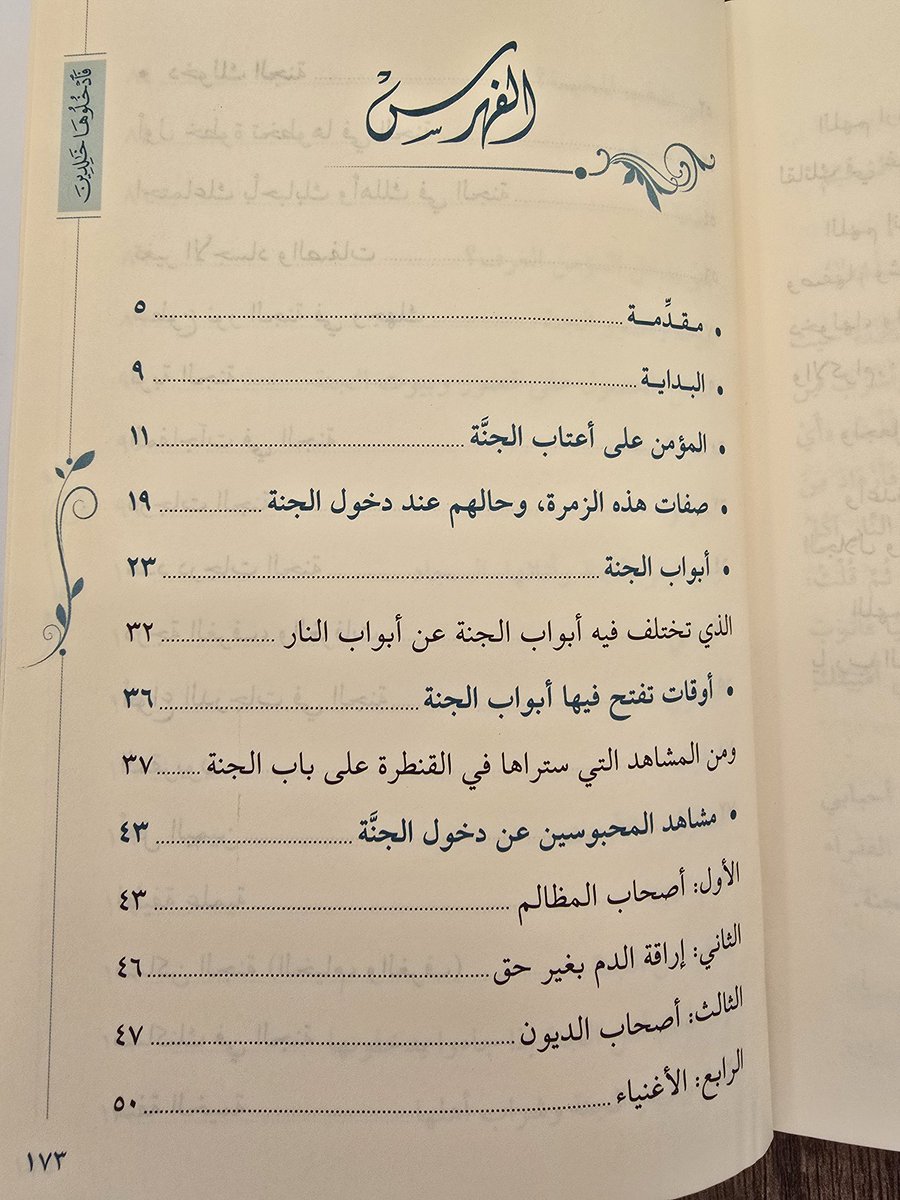 الفهرس
فَادْخُلُوهَا خَالِدِينَ
• مقدِّمة ........ ٥
• البداية ........ ٩
• المؤمن على أعتاب الجنَّة ........ ١١
• صفات هذه الزمرة، وحالهم عند دخول الجنة ........ ١٩
• أبواب الجنة ........ ٢٣
الذي تختلف فيه أبواب الجنة عن أبواب النار ........ ٣٢
• أوقات تفتح فيها أبواب الجنة ........ ٣٦
ومن المشاهد التي ستراها في القنطرة على باب الجنة ........ ٣٧
• مشاهد المحبوسين عن دخول الجنَّة ........ ٤٣
الأول: أصحاب المظالم ........ ٤٣
الثاني: إراقة الدم بغير حق ........ ٤٦
الثالث: أصحاب الديون ........ ٤٧
الرابع: الأغنياء ........ ٥٠
١٧٣